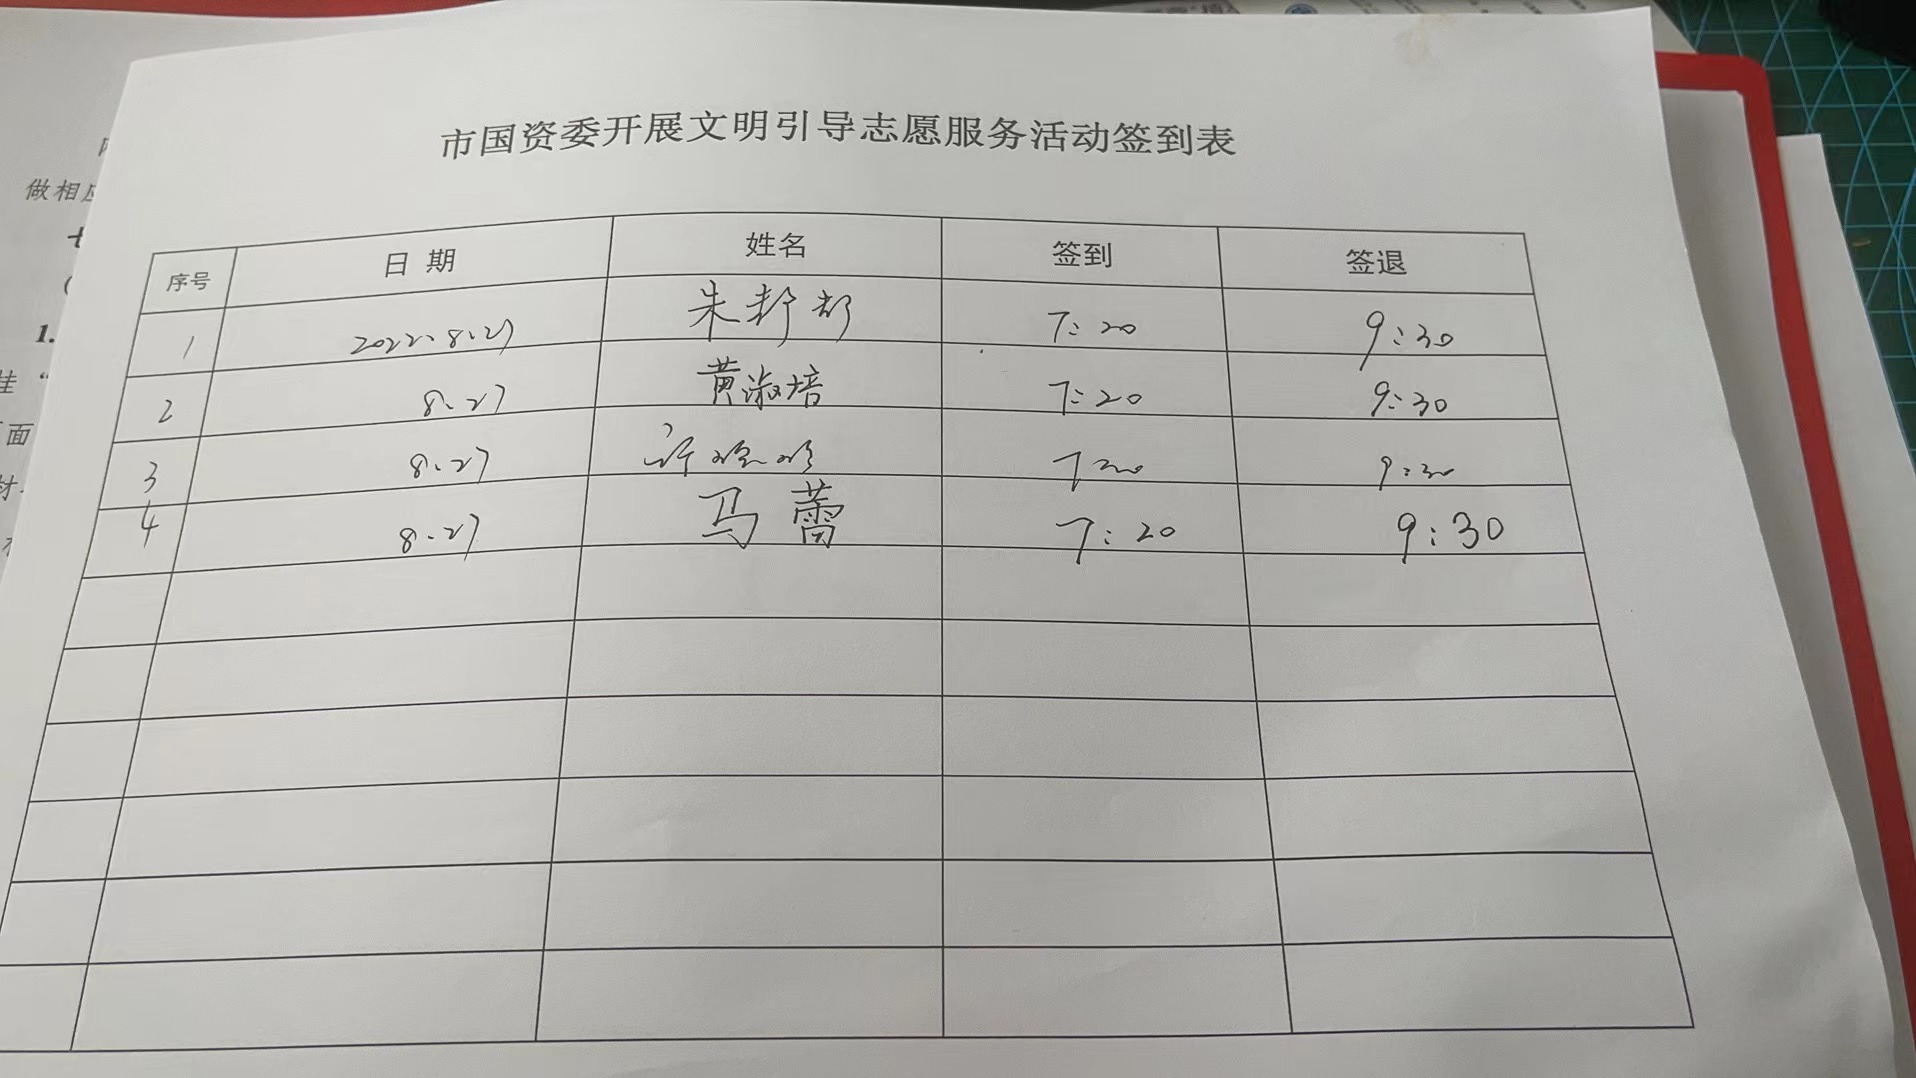 做相应
1.
面
市国资委开展文明引导志愿服务活动签到表
序号 日 期 姓名 签到 签退
1 2022.8.27 朱 7:20 9:30
2 8.27 黄淑培 7:20 9:30
3 8.27 许 7:20 9:30
4 8.27 马蕾 7:20 9:30